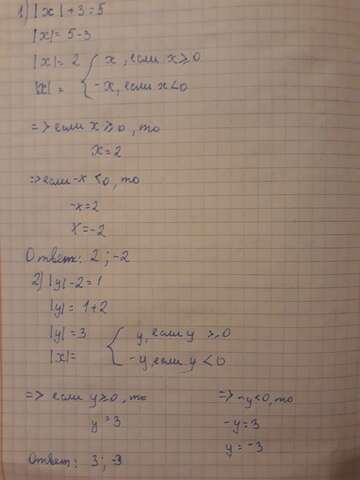 1) |x| + 3 = 5
|x| = 5-3
|x| = 2 { x, если x ⩾ 0
|x| = { -x, если x < 0
=> если x ⩾ 0, то
x = 2
=> если -x < 0, то
-x = 2
x = -2
Ответ: 2 ; -2
2) |y| - 2 = 1
|y| = 1+2
|y| = 3 { y, если y ⩾ 0
|x| = { -y, если y < 0
=> если y ⩾ 0, то
y = 3
=> -y < 0, то
-y = 3
y = -3
Ответ: 3 ; -3